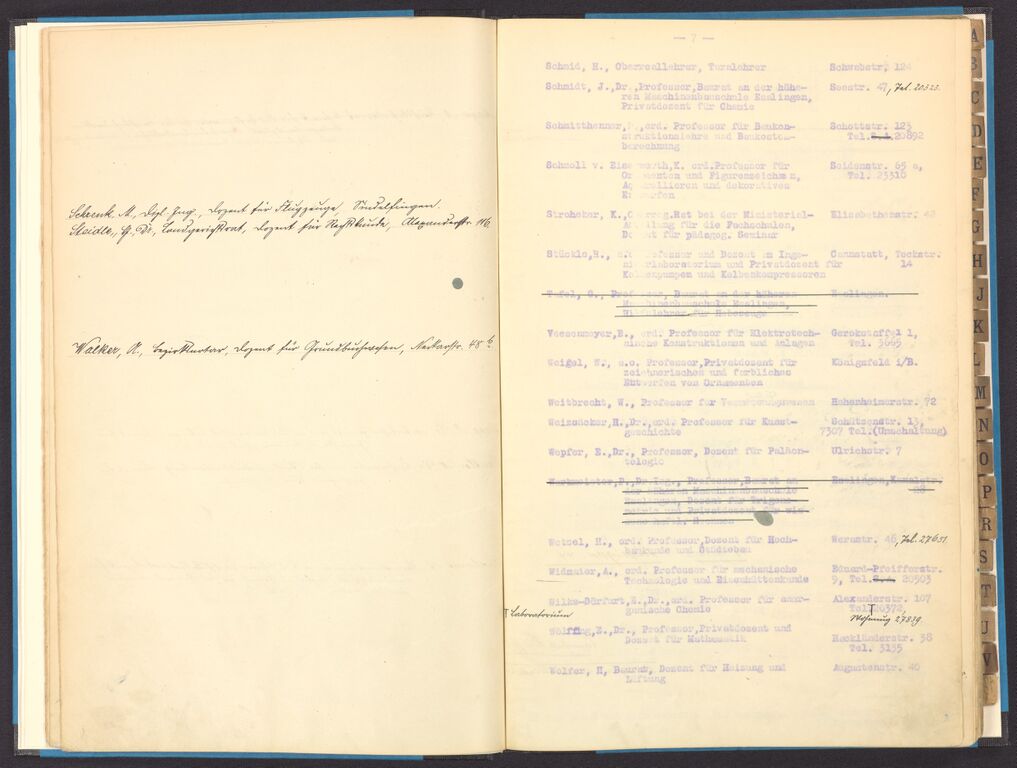 Schenk, A., Dipl. Ing., Dozent für Flugzeuge, Sindelfingen.
Steidle, Dr., Landgerichtsrat, Dozent für Rechtskunde, Alexanderstr.
Walker, A., Bezirksnotar, Dozent für Grundbuchwesen, Neckarstr. 48 b.
— 7 —
Schmid, H., Oberreallehrer, Turnlehrer Schwabstr. 124
Schmidt, J., Dr., Professor, Baurat an der höhe- Seestr. 47, Tel. 20323.
ren Maschinenbauschule Esslingen,
Privatdozent für Chemie
Schmitthenner, ord. Professor für Baukon- Schottstr. 123
struktionslehre und Baukosten- Tel. 20892
berechnung
Schmoll v. Eisenwerth, K. ord. Professor für Seidenstr. 65 a,
Ornamenten und Figurenzeichnen, Tel. 25310
Aquarellieren und dekoratives
Entwerfen
Strohaker, K., Oberreg. Rat bei der Ministerial- Elisabethenstr. 43
Abteilung für die Fachschulen,
Dozent für pädagog. Seminar
Stückle, R., a.o. Professor und Dozent am Inge- Cannstatt, Teckstr.
nieurlaboratorium und Privatdozent für 14
Kolbenpumpen und Kolbenkompressoren
Tafel, O., Professor, Baurat an der höheren Esslingen.
Maschinenbauschule Esslingen,
Hilfslehrer für Hebezeuge
Veesenmeyer, E., ord. Professor für Elektrotech- Gerokstaffel 1,
nische Konstruktionen und Anlagen Tel. 3665
Weigel, W., a.o. Professor, Privatdozent für Königsfeld i/B.
zeichnerisches und farbliches
Entwerfen von Ornamenten
Weitbrecht, W., Professor für Vermessungswesen Hohenheimerstr. 72
Weizsäcker, H., Dr., ord. Professor für Kunst- Schützenstr. 13,
geschichte 7307 Tel. (Umschaltung)
Wepfer, E., Dr., Professor, Dozent für Paläon- Ulrichstr. 7
tologie
Werkmeister, P., Dr. Ing., Professor, Baurat an Esslingen, Kanalstr.
der höheren Maschinenbauschule
Esslingen, Dozent für Trigono-
metrie und Privatdozent für
Wetzel, H., ord. Professor, Dozent für Hoch- Werastr. 46, Tel. 27651.
baukunde und Städtebau
Widmaier, A., ord. Professor für mechanische Eduard-Pfeifferstr.
Technologie und Eisenhüttenkunde 9, Tel. 20503
Wilke-Dörfurt, E., Dr., ord. Professor für anor- Alexanderstr. 107
Laboratorium ganische Chemie Tel. 20372
Wohnung 27829
Wölffing, E., Dr., Professor, Privatdozent und
Dozent für Mathematik Hackländerstr. 38
Tel. 3135
Wolfer, H, Baurat, Dozent für Heizung und Augustenstr. 40
Lüftung
A
B
C
D
E
F
G
H
J
K
L
M
N
O
P
R
S
T
U
V